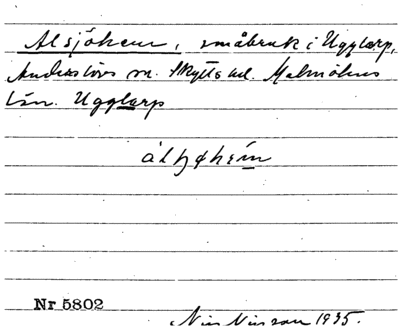 Alsjöhem, småbruk i Ugglarp,
Anderslövs sn. Skytts hd. Malmöhus
län. Ugglarp
Nr 5802
Nils Nilsson 1935.